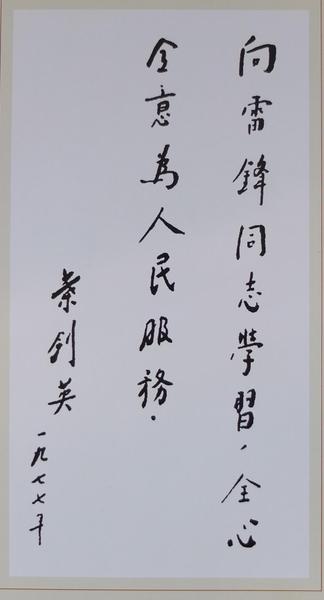 向雷鋒同志學習，全心
全意為人民服務．
葉剑英
一九七七年